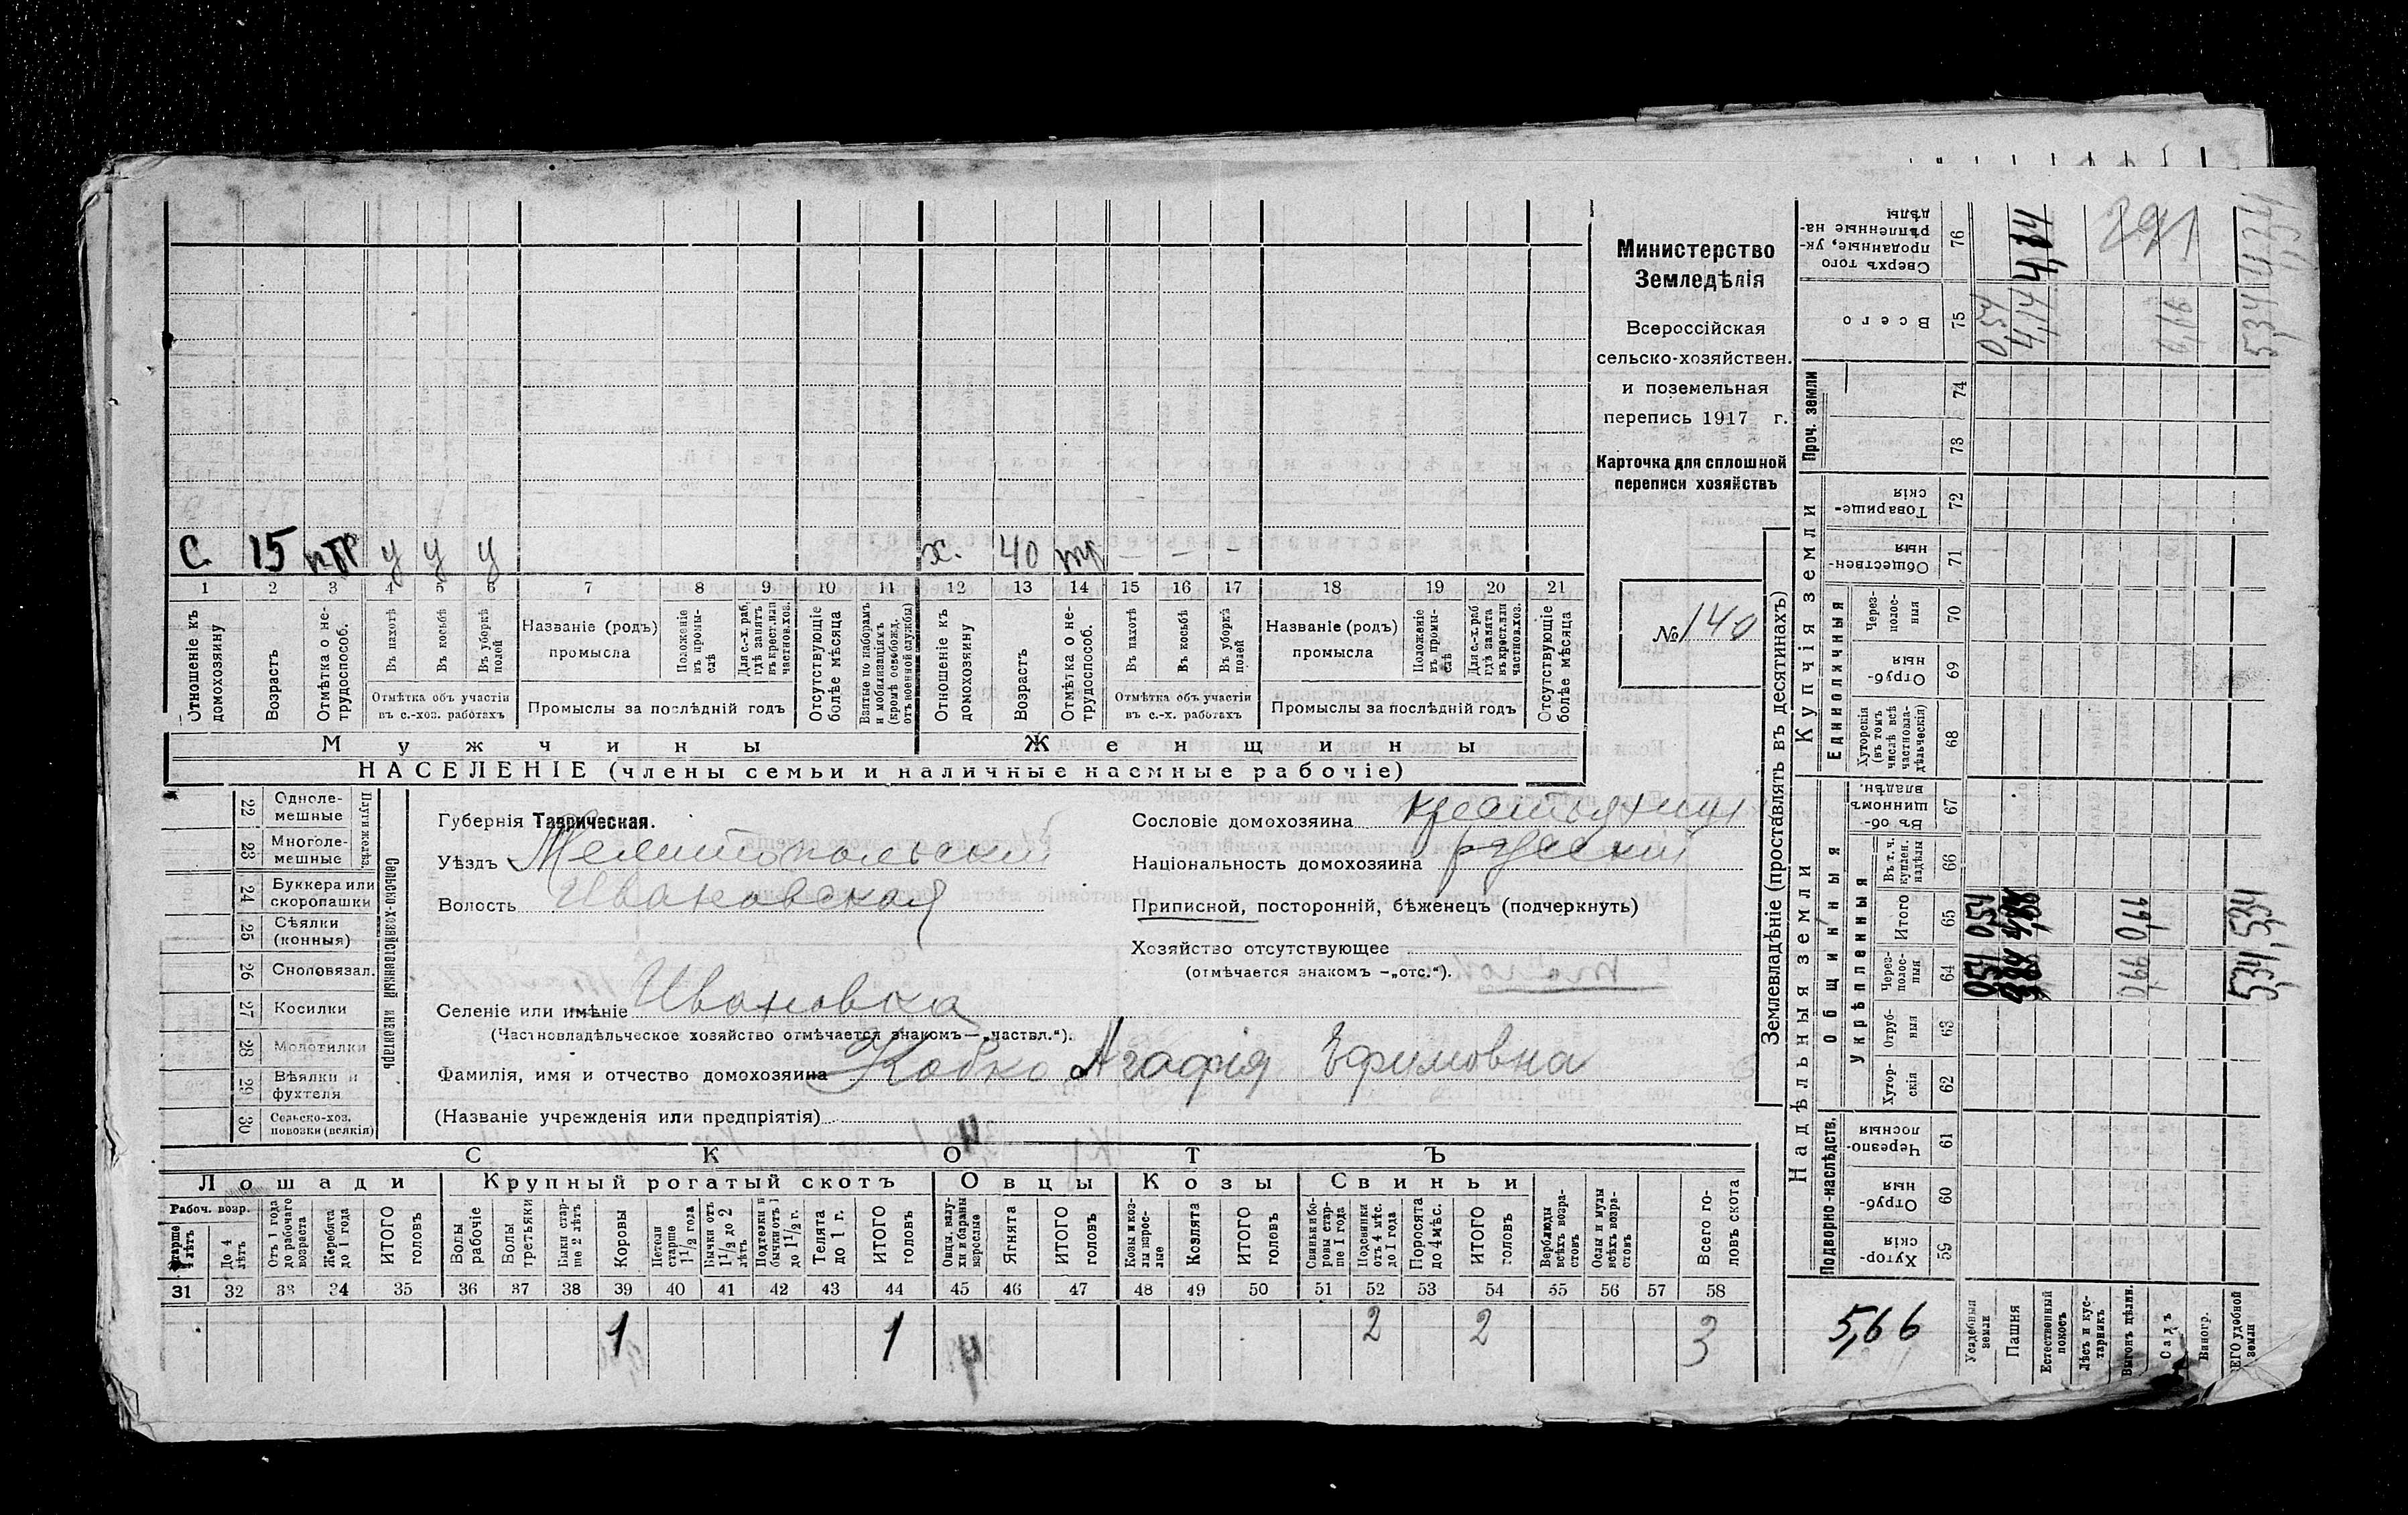 С. 15 нтр у у у х. 40 тр — — —
1 2 3 4 5 6 7 8 9 10 11 12 13 14 15 16 17 18 19 20 21
Отношеніе къ домохозяину
Возрастъ
Отмѣтка о не-трудоспособ.
Въ пахотѣ
Въ косьбѣ
Въ уборкѣ полей
Отмѣтка объ участіи
въ с.-хоз. работахъ
Названіе (родъ)
промысла
Положеніе въ промы-слѣ
Для с.-х. раб. гдѣ занятъ въ крест. или частнов. хоз.
Промыслы за послѣдній годъ
Отсутствующіе болѣе мѣсяца
Взятые по наборамъ и мобилизаціямъ (кромѣ освобожд. отъ военной службы)
Отношеніе къ домохозяину
Возрастъ
Отмѣтка о не-трудоспособ.
Въ пахотѣ
Въ косьбѣ
Въ уборкѣ полей
Отмѣтка объ участіи
въ с.-х. работахъ
Названіе (родъ)
промысла
Положеніе въ промы-слѣ
Для с.-х. раб. гдѣ занята въ крест. или частнов. хоз.
Промыслы за послѣдній годъ
Отсутствующіе болѣе мѣсяца
Мужчины Женщины
НАСЕЛЕНІЕ (члены семьи и наличные наемные рабочіе)
Министерство
Земледѣлія
Всероссійская
сельско-хозяйствен.
и поземельная
перепись 1917 г.
Карточка для сплошной
переписи хозяйствъ
№ 140
22 Одноле-мешные
23 Многоле-мешные
Плуги желѣз.
24 Буккера или скоропашки
25 Сѣялки (конныя)
26 Сноповязал.
27 Косилки
28 Молотилки
29 Вѣялки и фухтеля
30 Сельско-хоз. повозки (всякія)
Сельско-хозяйственный инвентарь
Губернія Таврическая.
Уѣздъ Мелитопольскій
Волость Ивановская
Селеніе или имѣніе Ивановка
(Частновладѣльческое хозяйство отмѣчается знакомъ — „частвл.“).
Фамилія, имя и отчество домохозяина Кобко Агафія Ефимовна
(Названіе учрежденія или предпріятія)
Сословіе домохозяина
Національность домохозяина русскій
Приписной, посторонній, бѣженецъ (подчеркнуть)
Хозяйство отсутствующее
(отмѣчается знакомъ —„отс.“).
СКОТЪ
Лошади Крупный рогатый скотъ Овцы Козы Свиньи
Рабоч. возр.
Старше 4 лѣтъ
До 4 лѣтъ
Отъ 1 года до рабочаго возраста
Жеребята до 1 года
ИТОГО головъ
Волы рабочіе
Волы третьяки
Быки стар-ше 2 лѣтъ
Коровы
Нетели старше 1½ года
Бычки отъ 1½ до 2 лѣтъ
Подтелки и бычки отъ 1 до 1½ г.
Телята до 1 г.
ИТОГО головъ
Овцы, валу-хи и бараны взрослые
Ягнята
ИТОГО головъ
Козы и коз-лы взрос-лые
Козлята
ИТОГО головъ
Свиньи и бо-ровы стар-ше 1 года
Подсвинки отъ 4 мѣс. до 1 года
Поросята до 4 мѣс.
ИТОГО головъ
Верблюды всѣхъ возра-стовъ
Ослы и мулы всѣхъ возра-стовъ
Всего го-ловъ скота
31 32 33 34 35 36 37 38 39 40 41 42 43 44 45 46 47 48 49 50 51 52 53 54 55 56 57 58
1 1 2 2 3
Землевладѣніе (проставлять въ десятинахъ)
Надѣльныя земли
Купчія земли
Проч. земли
Подворно-наслѣдств.
Общинныя
Укрѣпленныя
Единоличныя
Хутор-скія 59
Отруб-ныя 60
Черезпо-лосныя 61
Хутор-скія 62
Отруб-ныя 63
Через-полос-ныя 64
Итого 65
Въ т. ч. куплен. надѣлы 66
Въ об-щинномъ владѣн. 67
Хуторскія (въ томъ числѣ всѣ частновла-дѣльческія) 68
Отруб-ныя 69
Через-полос-ныя 70
Обществен-ныя 71
Товарище-скія 72
73
74
Всего 75
Сверхъ того проданные, ук-рѣпленные на-дѣлы 76
Усадебныя земли 0,54 0,54 0,54
Пашня 4,14
Естественный покосъ
Лѣсъ и кус-тарникъ
Выгонъ цѣлин. 0,66 0,66
Садъ
Виногр.
ЕГО удобной земли 5,34 5,34 5,34
5,66
291